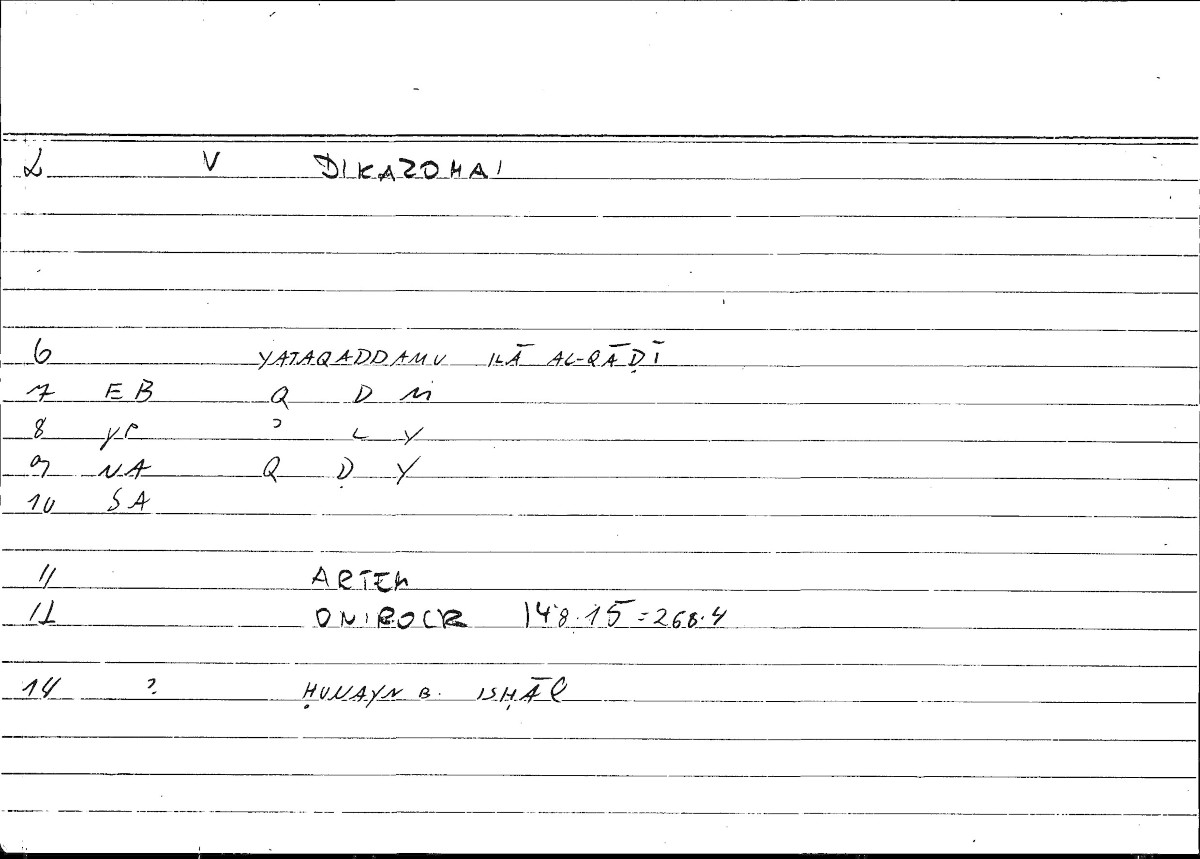 2 V DIKAZOMAI
6 YATAQADDAMU ILĀ AL-QĀḌĪ
7 EB Q D M
8 YP ʾ L Y
9 NA Q Ḍ Y
10 SA
11 ARTEM
12 ONIROCR 148.15=268.4
14 ? ḤUNAYN B. ISḤĀQ